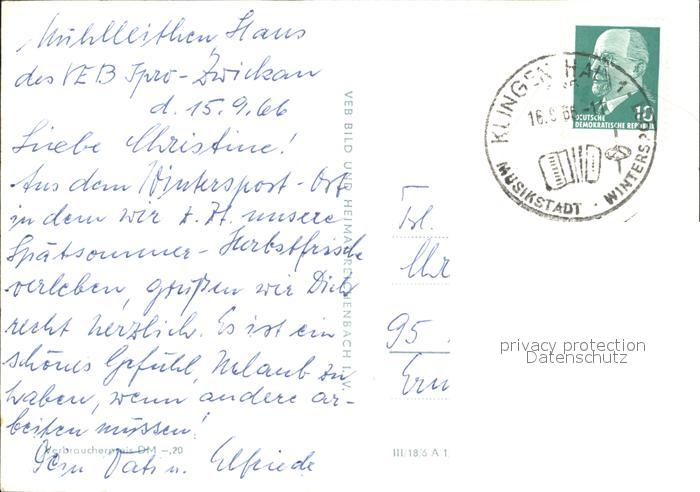 Mühlleithen, Haus
des VEB Ipro-Zwickau
d. 15.9.66
Liebe Christine!
Aus dem Wintersport-Ort
in dem wir z. Zt. unsere
Spätsommer-Herbstfrische
verleben, grüßen wir Dich
recht herzlich. Es ist ein
schönes Gefühl, Urlaub zu
haben, wenn andere ar-
beiten müssen!
Dein Vati u. Elfriede
Verbraucherpreis DM -,20
VEB BILD UND HEIMAT REICHENBACH I. V.
III/18/6 A 1
KLINGENTHAL 1
16.9.66-17
MUSIKSTADT · WINTERSP
10
DEUTSCHE
DEMOKRATISCHE REPUBLIK
Frl.
Chr
95
Ern
privacy protection
Datenschutz